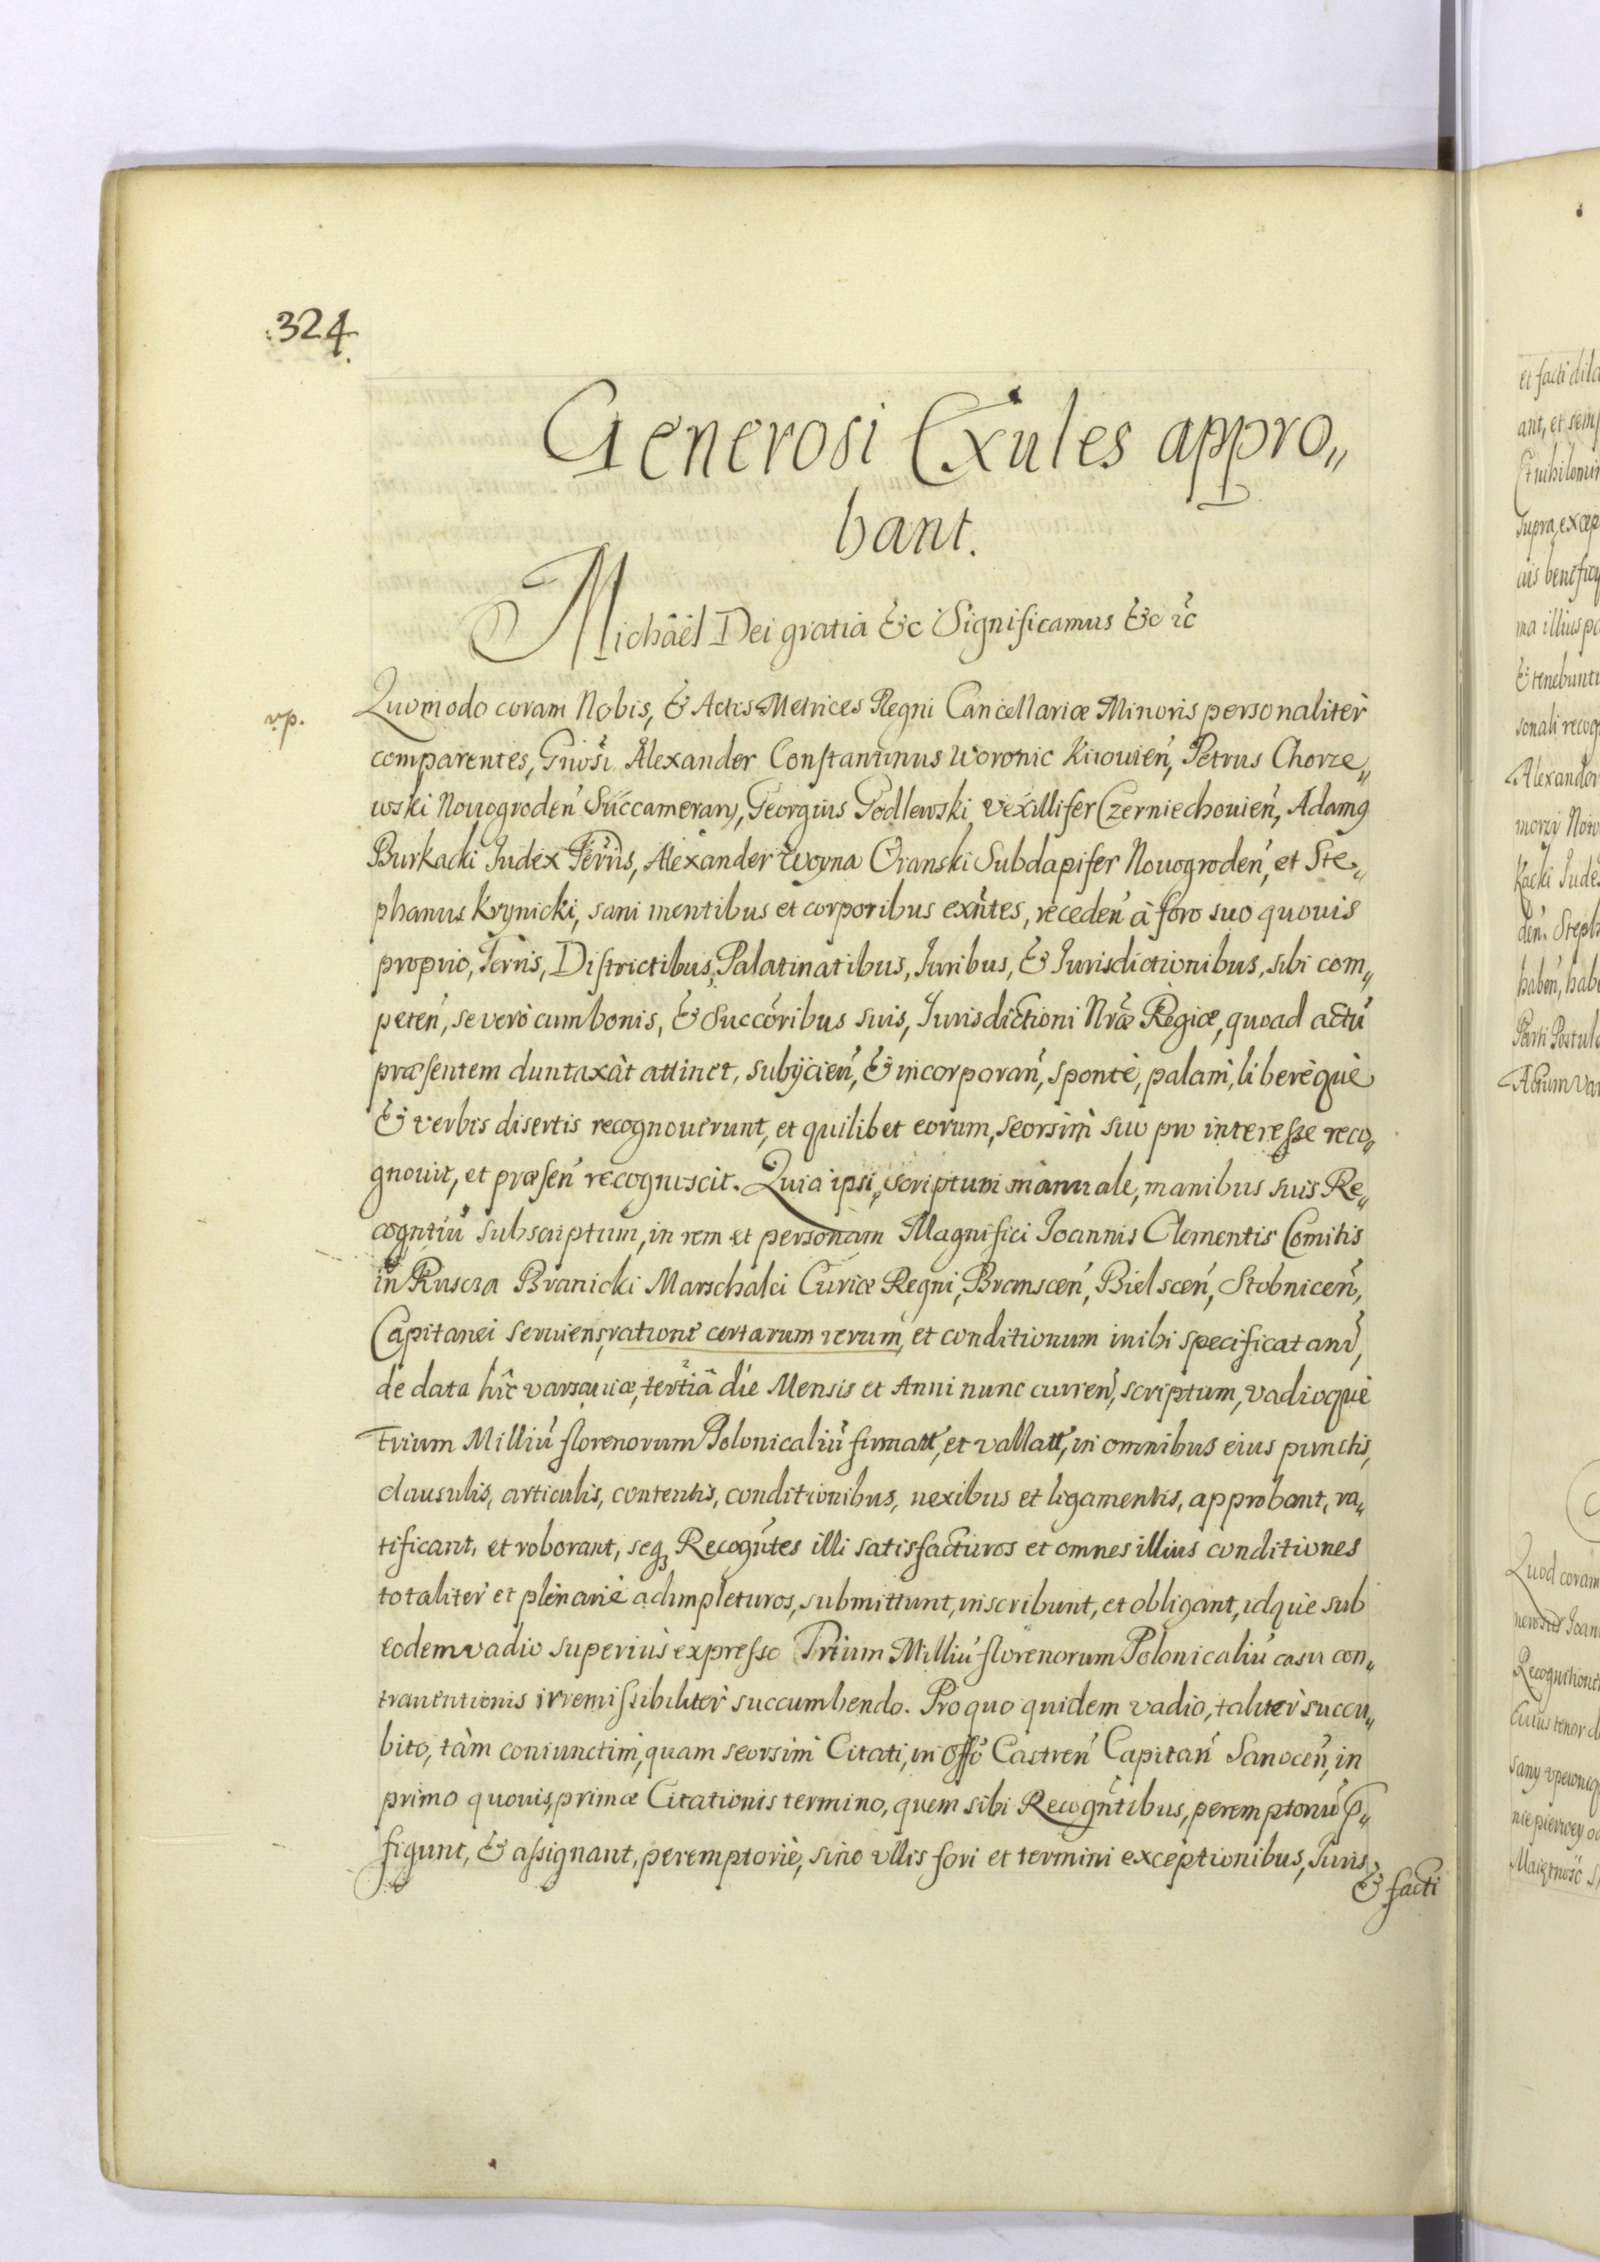 324
Generosi Exules appro„
bant.
Michäel Dei gratia &c Significamus &c &c
vp.
Quomodo coram Nobis, & Actis Metrices Regni Cancellariæ Minoris personalitèr
comparentes, Gñosi Alexander Constantinus Woronic Kiiouień, Petrus Chorze„
wski Nouogrodeń Succameran, Georgius Godlewski vexillifer Czerniechouień, Adamg
Burkacki Judex Terris, Alexander Woyna Oranski Subdapifer Nouogrodeń, et Ste„
phanus Krynicki, sani mentibus et corporibus exñtes, recedeń à foro suo quouis
proprio, Terris, Districtibus, Palatinatibus, Juribus, & Jurisdictionibus, sibi com„
peteń, se verò cum bonis, & Succõribus suis, Jurisdictioni Nræ Regiæ, quoad actũ
præsentem duntaxàt attinet, subijcień, & incorporań, spontè, palam, liberèquè
& verbis disertis recognouerunt, et quilibet eorum, seorsim suo pro interesse reco„
gnouit, et præseń recognoscit. Quia ipsi, scriptum manuale, manibus suis Re„
cogntiũ subscriptum, in rem et personam Magnifici Joannis Clementis Comitis
in Ruscza Branicki Marschalci Curiæ Regni, Bramsceń, Bielsceń, Stobniceń,
Capitanei seruiens, ratione certarum rerum, et conditionum inibi specificatarũ,
de data hîc varsauiæ, tertiâ die Mensis et Anni nunc curreń, scriptum, vadioquè
Trium Milliũ florenorum Polonicaliũ firmatt, et vallatt, in omnibus eius punctis,
clausulis, articulis, contentis, conditionibus, nexibus et ligamentis, approbant, ra„
tificant, et roborant, seq Recogñtes illi satisfacturos et omnes illius conditiones
totalitèr et plenariè adimpleturos, submittunt, inscribunt, et obligant, idquè sub
eodem vadio superiùs expresso Trium Milliũ florenorum Polonicaliũ casu con„
trauentionis irremissibilitèr succumbendo. Pro quo quidem vadio, talitèr succu„
bito, tàm coniunctim, quam seorsim Citati, in Offõ Castreń Capitań Sanoceń, in
primo quouis, primæ Citationis termino, quem sibi Recogñtibus, peremptoriũ p„
figunt, & assignant, peremptoriè, sine vllis fori et termini exceptionibus, Juris
& facti